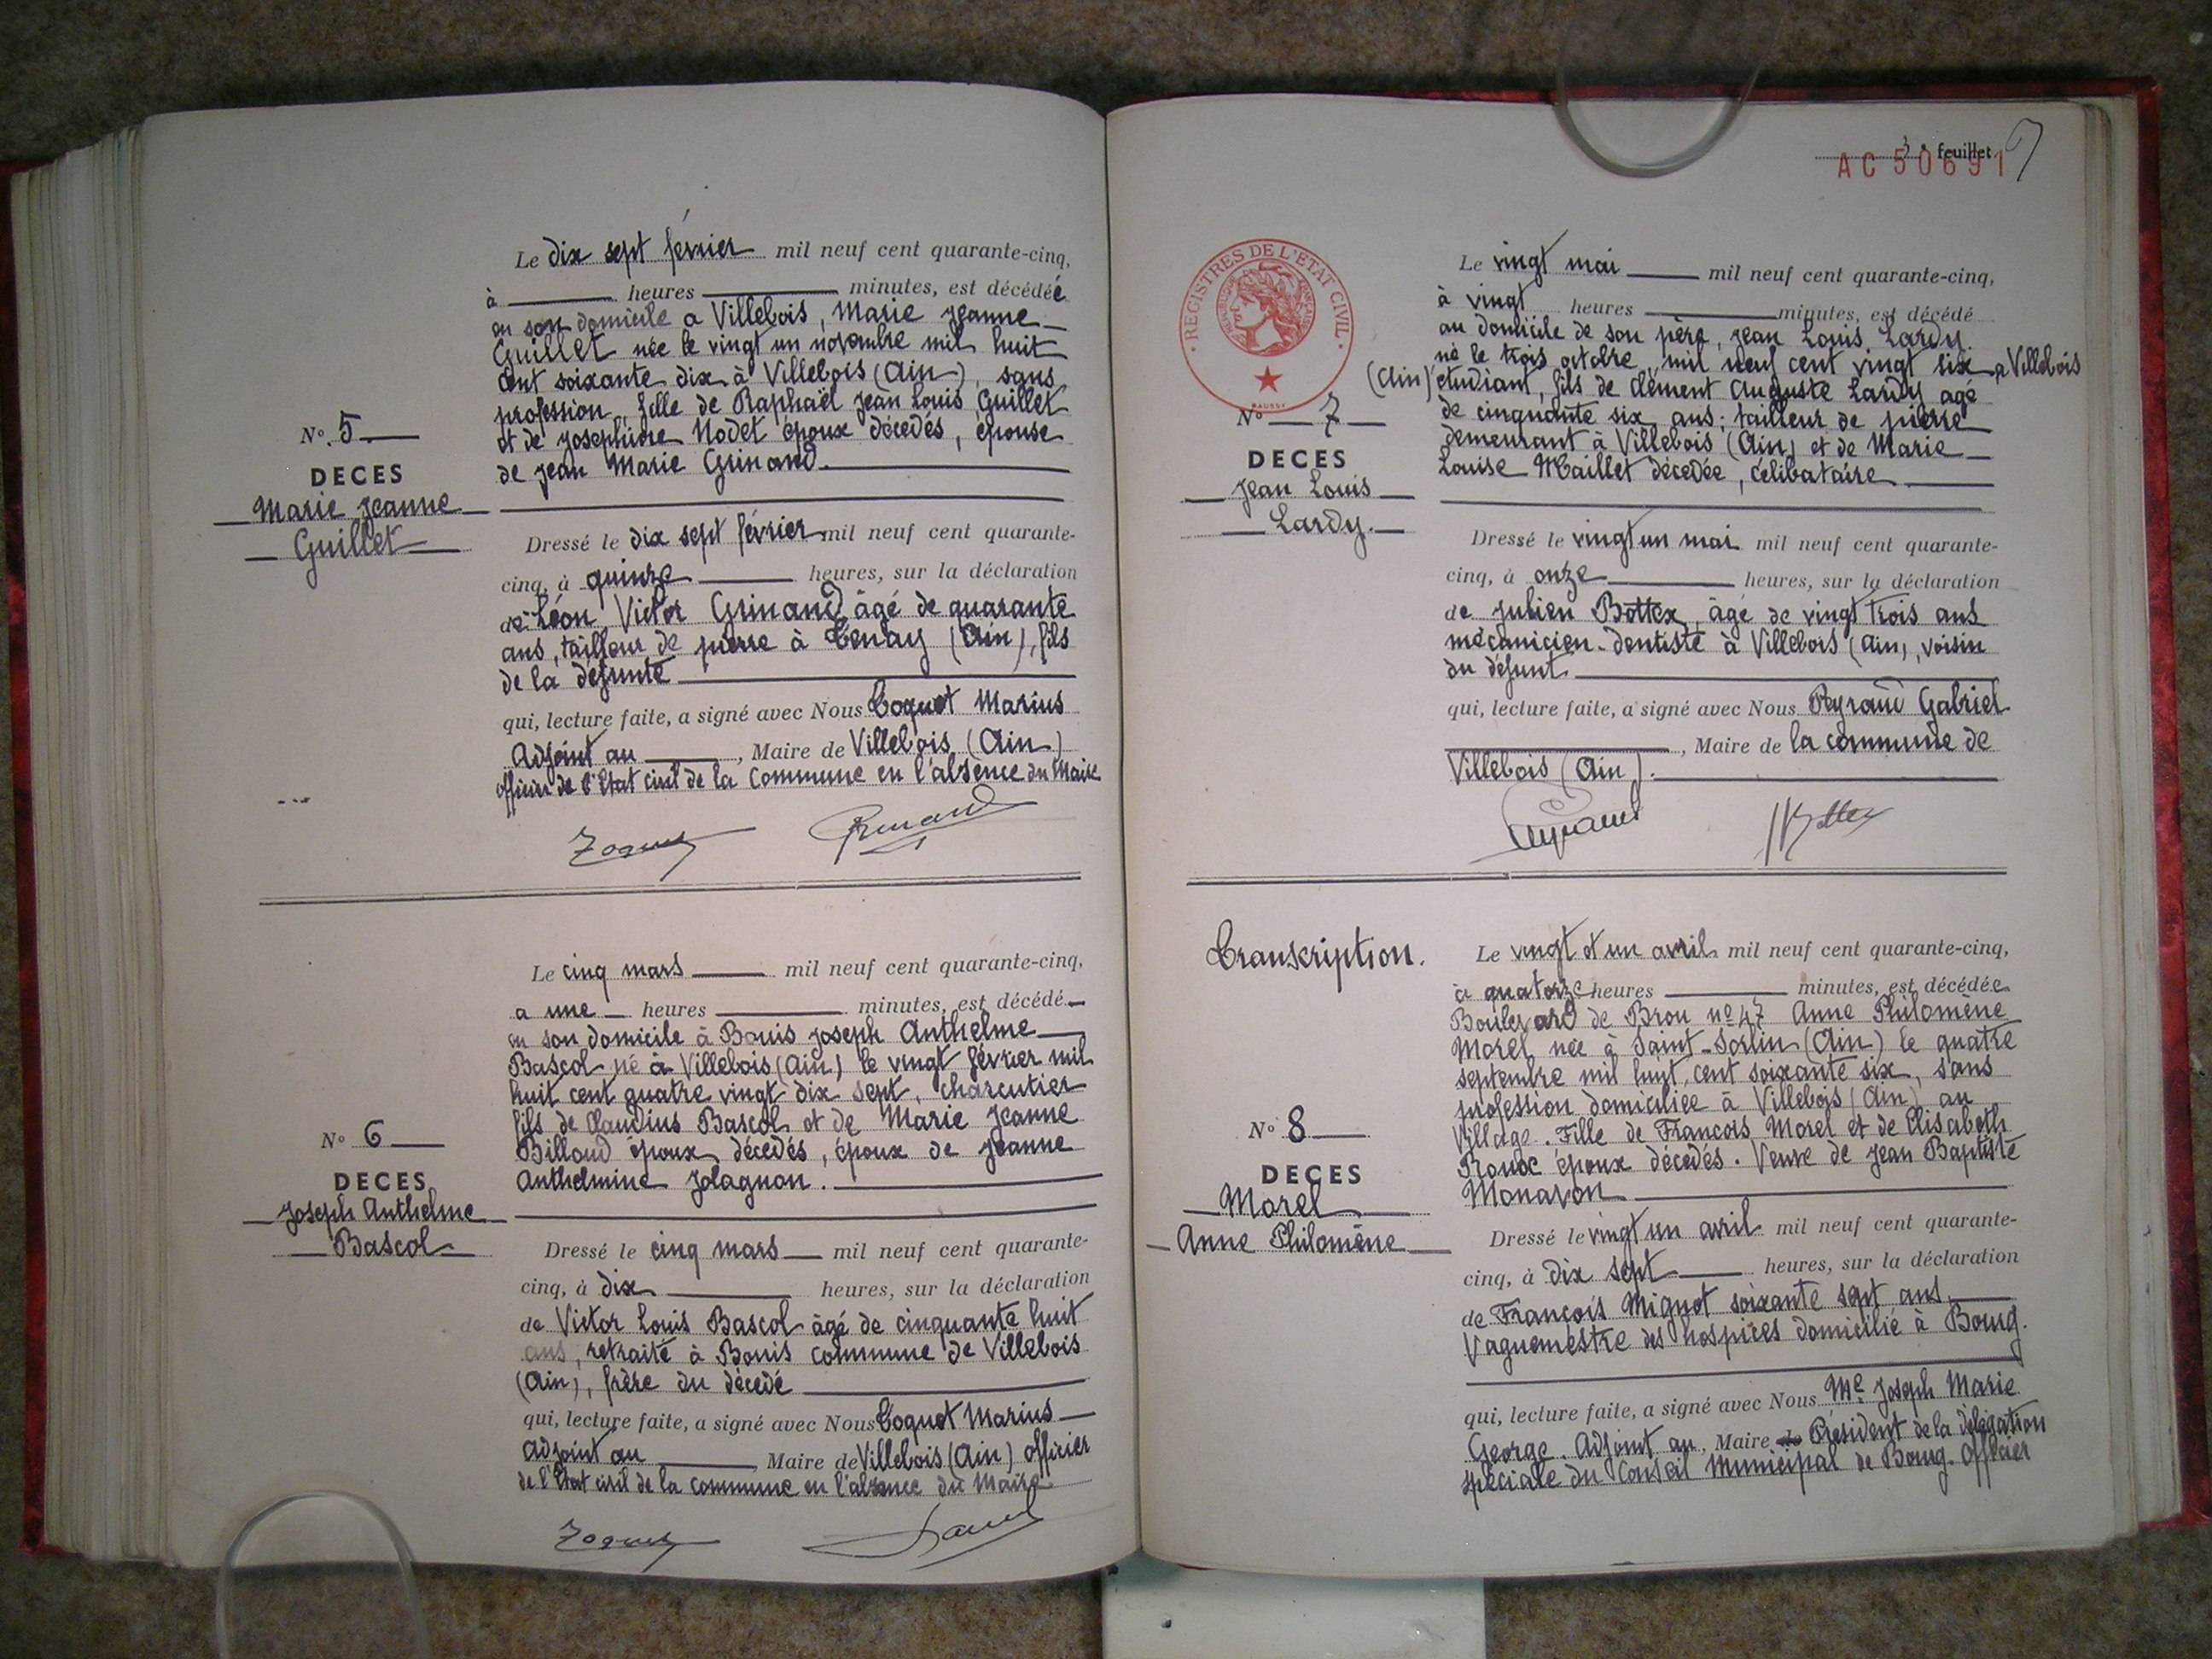 Le dix sept février mil neuf cent quarante-cinq,
à heures minutes, est décédée
en son domicile a Villebois, Marie Jeanne
Guillet née le vingt un novembre mil huit
cent soixante dix à Villebois (Ain), sans
profession, fille de Raphaël Jean Louis Guillet
et de Josephine Nodet époux décédés, épouse
de Jean Marie Grinand.
N° 5
DECES
Marie Jeanne
Guillet
Dressé le dix sept février mil neuf cent quarante-
cinq, à quinze heures, sur la déclaration
de Léon Victor Grinand âgé de quarante
ans, tailleur de pierre à Tenay (Ain), fils
de la défunte
qui, lecture faite, a signé avec Nous Coquet Marius
Adjoint au , Maire de Villebois (Ain)
officier de l'Etat civil de la Commune en l'absence du Maire
Grinand
Le cinq mars mil neuf cent quarante-cinq,
a une heures minutes, est décédé
en son domicile à Bouis Joseph Anthelme
Bascol né à Villebois (Ain) le vingt février mil
huit cent quatre vingt dix sept, charcutier
fils de Claudius Bascol et de Marie Jeanne
Billoud époux décédés, époux de Jeanne
Anthelmine Jolagnon.
N° 6
DECES
Joseph Anthelme
Bascol
Dressé le cinq mars mil neuf cent quarante-
cinq, à dix heures, sur la déclaration
de Victor Louis Bascol âgé de cinquante huit
ans, retraité à Bouis commune de Villebois
(Ain), frère du décédé
qui, lecture faite, a signé avec Nous Coquet Marius
Adjoint au Maire de Villebois (Ain) officier
de l'Etat civil de la commune en l'absence du Maire
3e feuillet
AC 50691
REGISTRES DE L'ETAT CIVIL
Le vingt mai mil neuf cent quarante-cinq,
à vingt heures minutes, est décédé
au domicile de son père, Jean Louis Lardy
né le trois octobre mil neuf cent vingt six a Villebois
(Ain) étudiant, fils de Clément Auguste Lardy agé
de cinquante six ans, tailleur de pierre
demeurant à Villebois (Ain) et de Marie
Louise Maillet décédée, célibataire
N° 7
DECES
Jean Louis
Lardy.
Dressé le vingt un mai mil neuf cent quarante-
cinq, à onze heures, sur la déclaration
de Julien Bottex, âgé de vingt trois ans
mécanicien-dentiste à Villebois (Ain), voisin
du défunt.
qui, lecture faite, a signé avec Nous Peyraud Gabriel
, Maire de la commune de
Villebois (Ain).
Peyraud Bottex
Transcription.
Le vingt et un avril mil neuf cent quarante-cinq,
à quatorze heures minutes, est décédée
Boulevard de Brou n° 47 Anne Philomène
Morel née à Saint-Sorlin (Ain) le quatre
septembre mil huit cent soixante six, sans
profession domiciliée à Villebois (Ain) au
Village. Fille de François Morel et de Elisabeth
Roux époux décédés. Veuve de Jean Baptiste
Monavon
N° 8
DECES
Morel
Anne Philomène
Dressé le vingt un avril mil neuf cent quarante-
cinq, à dix sept heures, sur la déclaration
de François Mignot soixante sept ans,
Vaguemestre des hospices domicilié à Bourg.
qui, lecture faite, a signé avec Nous Me Joseph Marie
George. Adjoint au Maire de Président de la délégation
spéciale du Conseil Municipal de Bourg. Officier